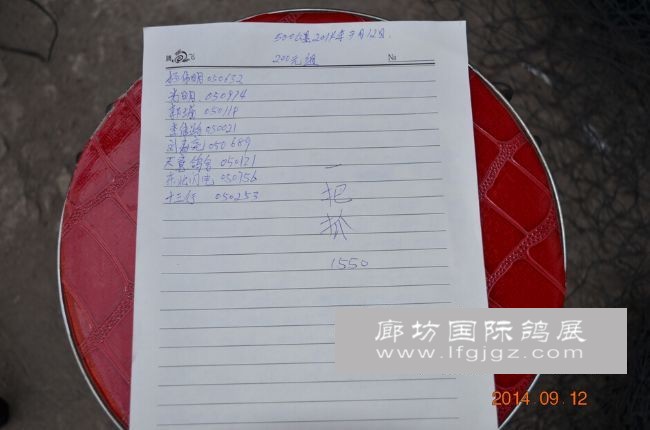 500公里2014年9月12日
200元组
No
杨伟明 050632
光明 050974
郭瑞 050118
李佳鸿 050021
刘春亮 050689
天意鸽舍 050121
东北闪电 050756
十三行 050253
一
把
抓
1550
廊坊国际鸽展
www.lfgjgz.com
2014.09.12